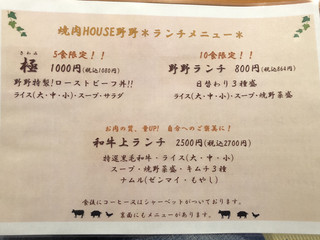 焼肉HOUSE野野＊ランチメニュー＊
5食限定！！
きわみ
極 1000円(税込1080円)
野野特製!ローストビーフ丼!!
ライス(大・中・小)・スープ・サラダ
10食限定！！
野野ランチ 800円(税込864円)
日替わり3種盛
ライス(大・中・小)・スープ・焼野菜盛
お肉の質、量UP! 自分へのご褒美に！
和牛上ランチ 2500円(税込2700円)
特選黒毛和牛・ライス(大・中・小)
スープ・焼野菜盛・キムチ3種
ナムル(ゼンマイ・もやし)
食後にコーヒーまたはシャーベットが付いております。
裏面にもメニューがあります。